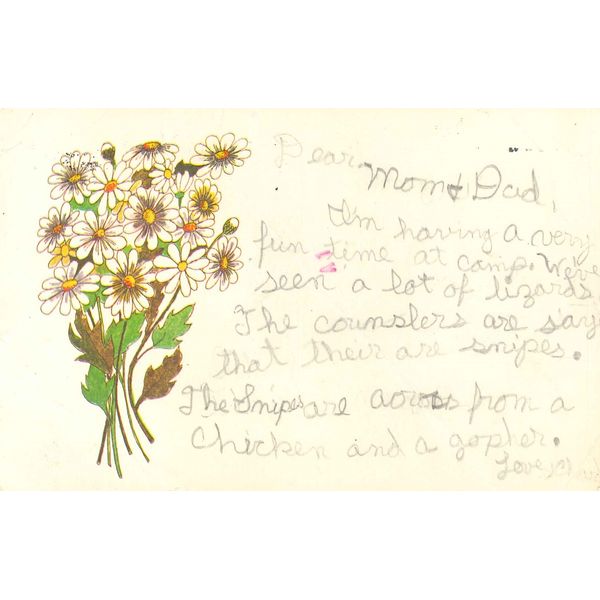 Dear Mom & Dad,
I'm having a very
fun time at camp. We've
seen a lot of lizards
The counslers are say
that their are snipes.
The Snipes are across from a
chicken and a gopher.
Love,